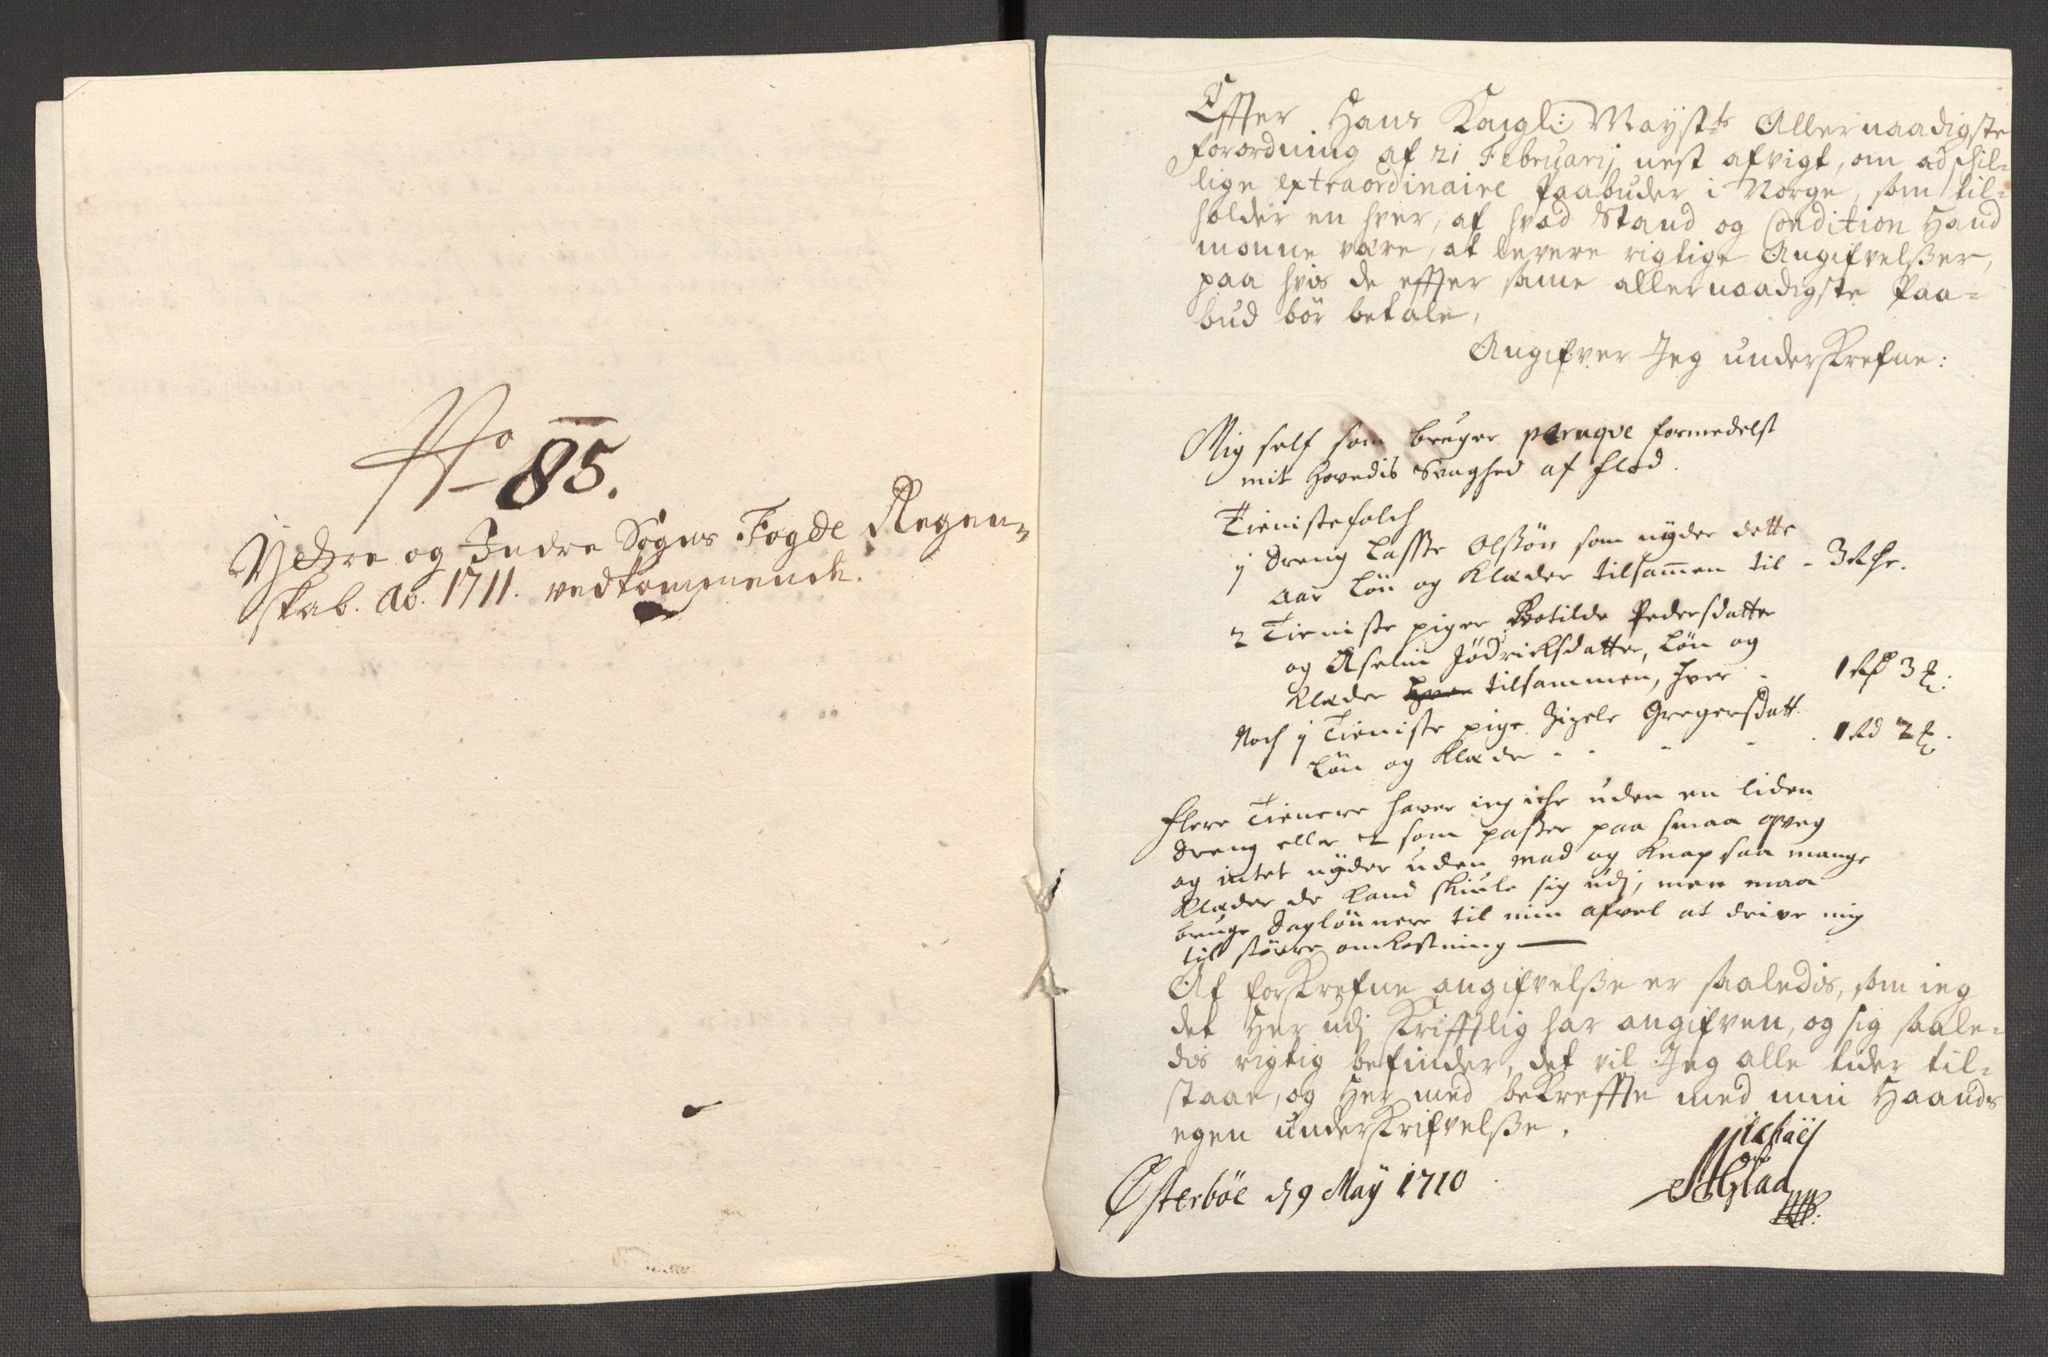 No 85.
Ydre og Indre Sogns Fogde Regen-
skab. Ao. 1711. vedkommende.
Effter Hans Kongl: Mayst:ts Allernaadigste
forordning af 21 Februarij nest afvigt, om adschil-
lige extraordinaire Paabuder i Norge, som til-
holder en hver, af hvad Stand og Condition Hand
monne være, at levere rigtige Angifvelßer,
paa hvis de effter samme allernaadigste Paa-
bud bör betale,
Angifver Jeg underskrefne:
Mig self som bruger peruqve formedelst
mit hovedis Svaghed af flod.
Tienistefolch
j Dreng Lasse Olsøn som nyder dette
aar Løn og Klæder tilsammen til - 3
2 Tieniste piger Botilde Pedersdatter
og Aselin Jødrichsdatter, Løn og
Klæder hver tilsammen, hver - 1 3
Noch j Tieniste pige Zizele Gregersdatt.
Løn og Klæder - - - - 1 2
flere Tienere haver ieg iche uden en liden
Dreng eller 2 som passer paa smaa qveg
og intet nyder uden mad og knap saa mange
Klæder de kand skiule sig udj, men maa
bruge Daglønnere til min afvel at drive mig
til større omkostning
At forskrefne angifvelße er saaledis, som ieg
det her udj skrifftlig har angifven, og sig saale-
dis rigtig befinder, det vil Jeg alle tider til-
staae, og Her med bekreffte med min Haands
egen underskrifvelße.
Østerböe d 9 May 1710
Michaël
Glad